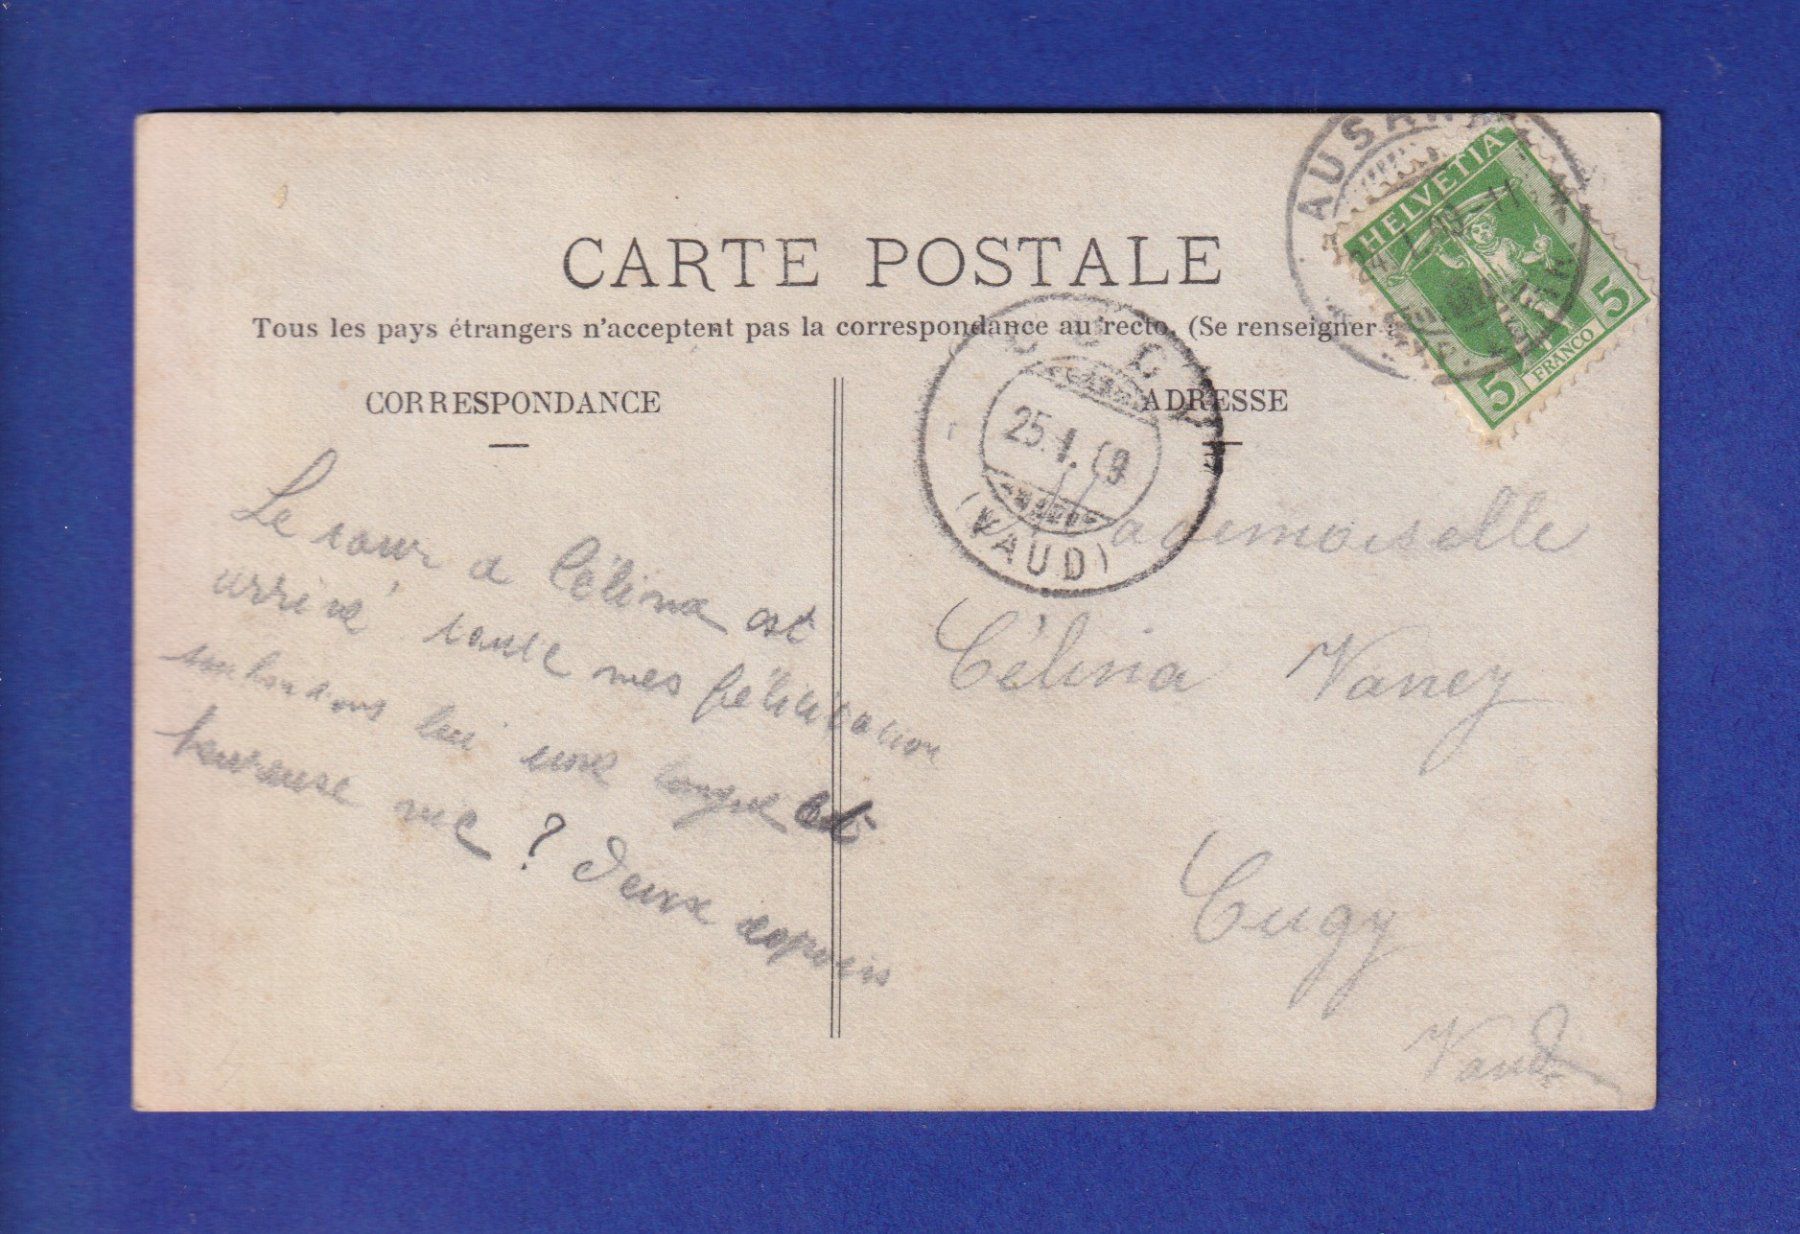 CARTE POSTALE
Tous les pays étrangers n'acceptent pas la correspondance au recto. (Se renseigner
CORRESPONDANCE
ADRESSE
Le tour a Célina est
arrivé toute mes félicitation
lui une longue et
heureuse vie ? Deux
AUSANN
HELVETIA
5
5
FRANCO
CUGY
25.1.09
(VAUD)
ademoiselle
Célina Vaney
Cugy
Vaud